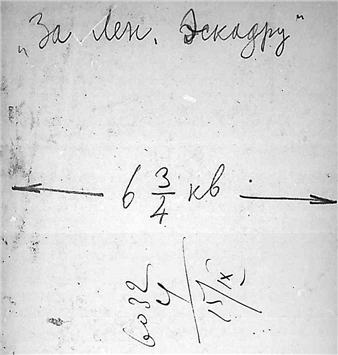 „За Лен. Эскадру"
6 3/4 кв
6032
15/IX